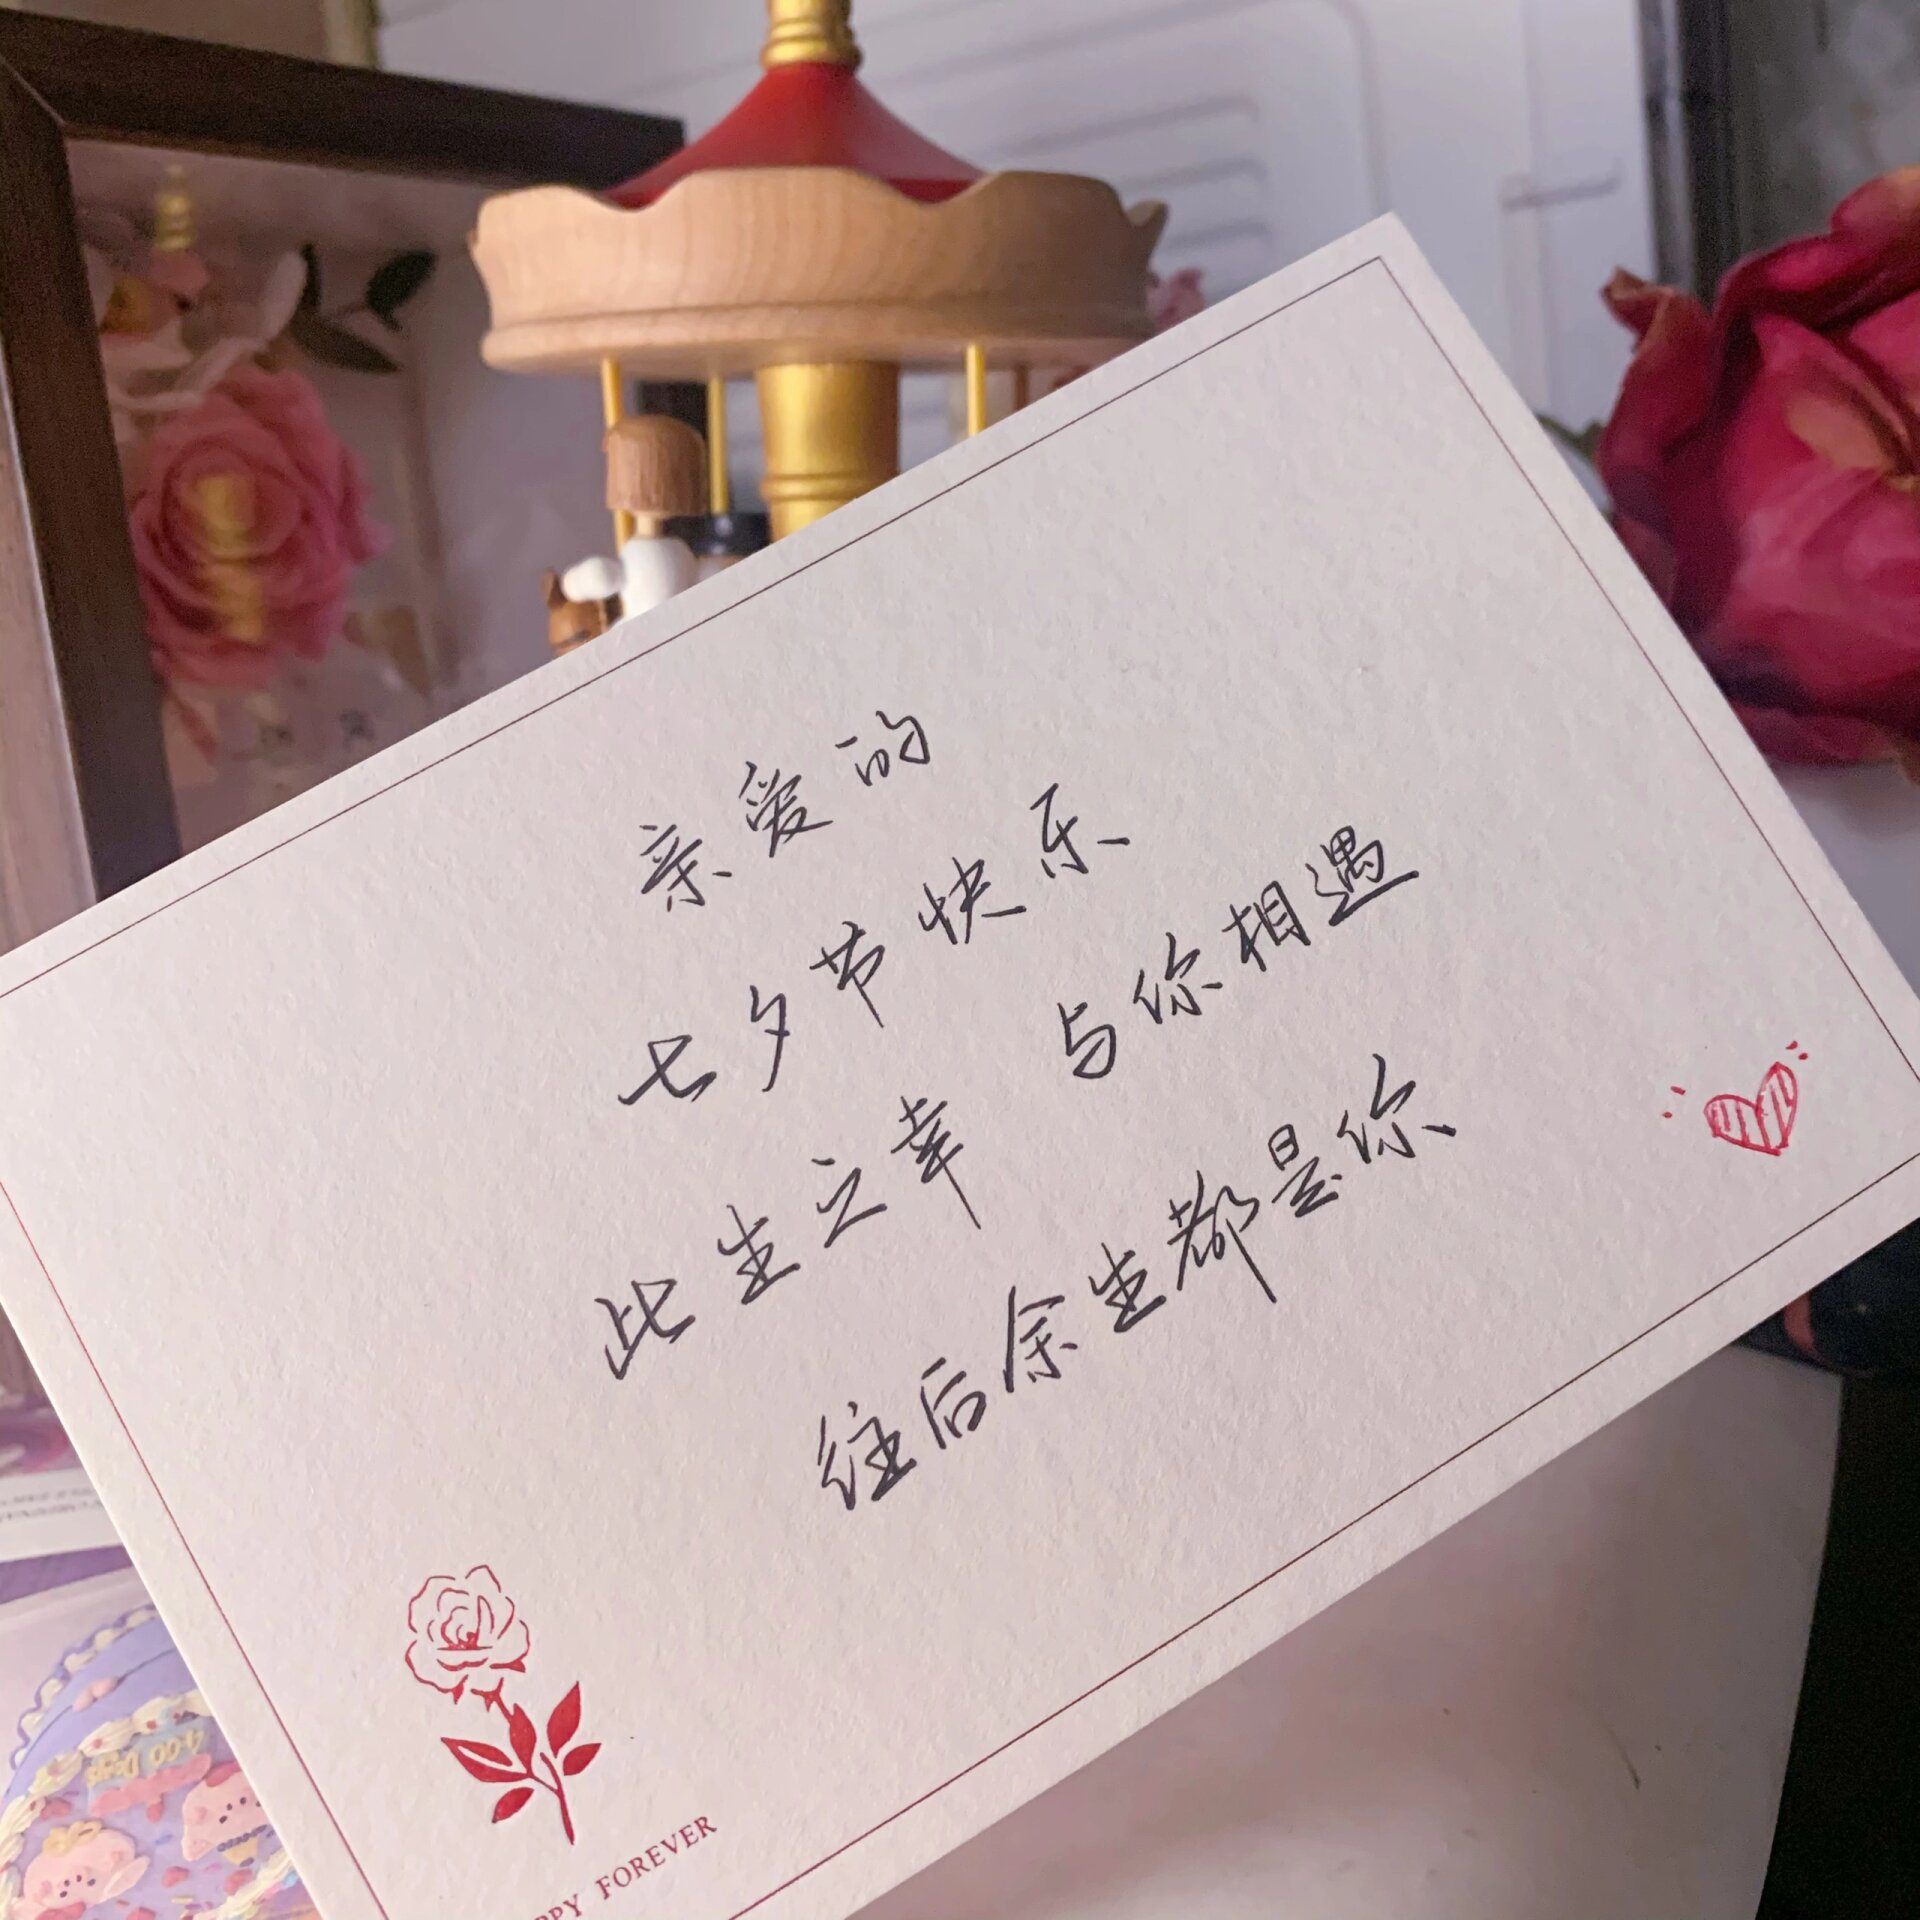 亲爱的
七夕节快乐
此生之幸 与你相遇
往后余生都是你
PPY FOREVER
400 Days